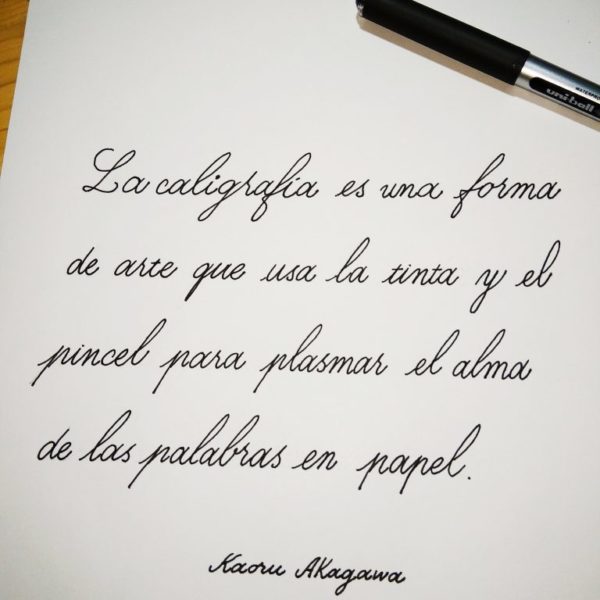 WATERPROO
uni-ball
La caligrafía es una forma
de arte que usa la tinta y el
pincel para plasmar el alma
de las palabras en papel.
Kaoru Akagawa